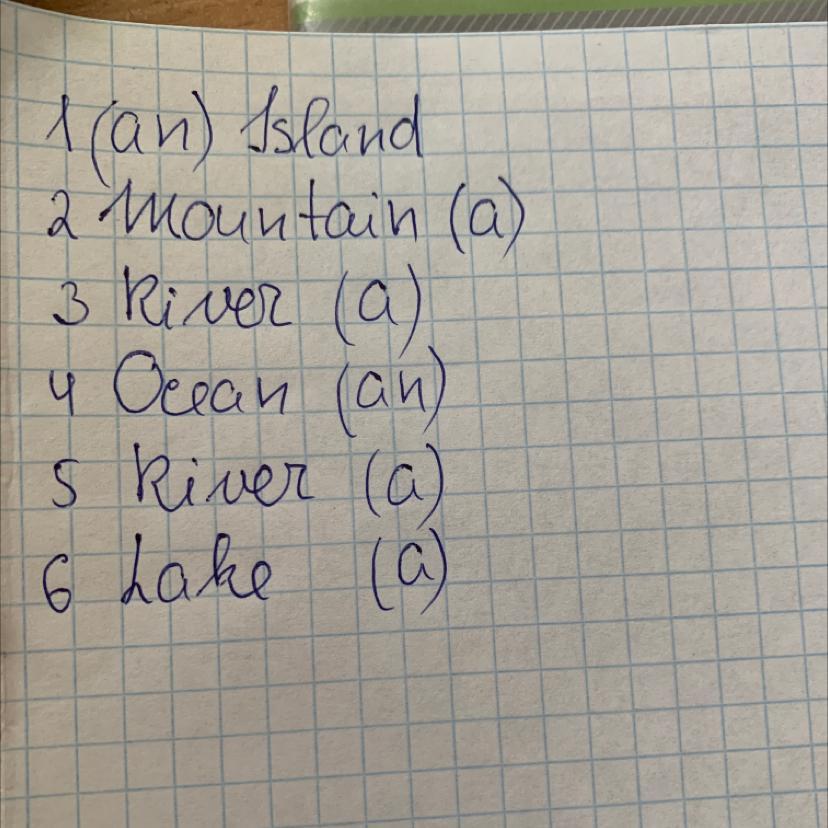 1 (an) Island
2 Mountain (a)
3 River (a)
4 Ocean (an)
5 River (a)
6 Lake (a)